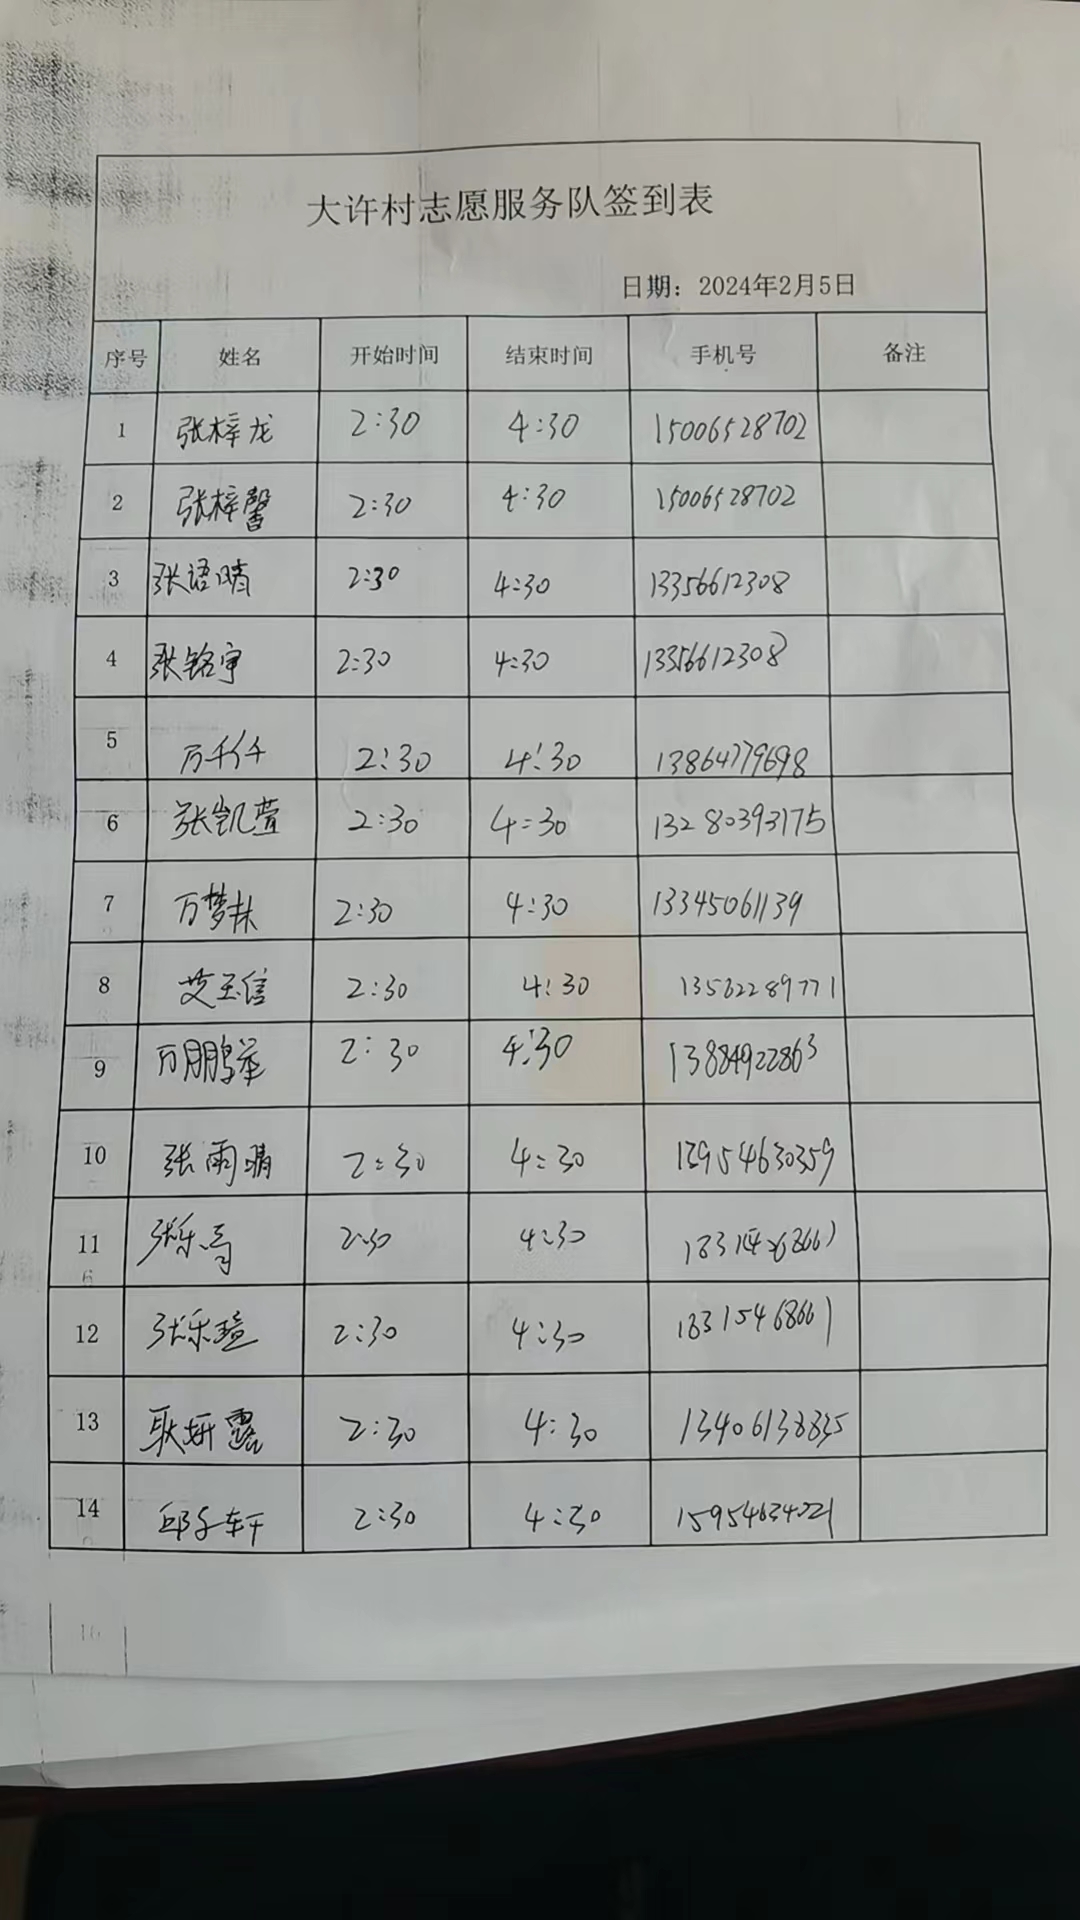 大许村志愿服务队签到表
日期：2024年2月5日
序号 姓名 开始时间 结束时间 手机号 备注
1 张梓龙 2:30 4:30 15006528702
2 张梓馨 2:30 4:30 15006528702
3 张语晴 2:30 4:30 13356612308
4 张铭宇 2:30 4:30 13356612308
5 万千仟 2:30 4:30 13864779698
6 张凯萱 2:30 4:30 13280393175
7 万梦林 2:30 4:30 13345061139
8 艾玉信 2:30 4:30 13562289771
9 万鹏举 2:30 4:30 13884922863
10 张雨晴 2:30 4:30 13954630359
11 2:30 4:30
12 张乐瑄 2:30 4:30 18315468661
13 耿妍露 2:30 4:30 13406138835
14 邱子轩 2:30 4:30 15954634221